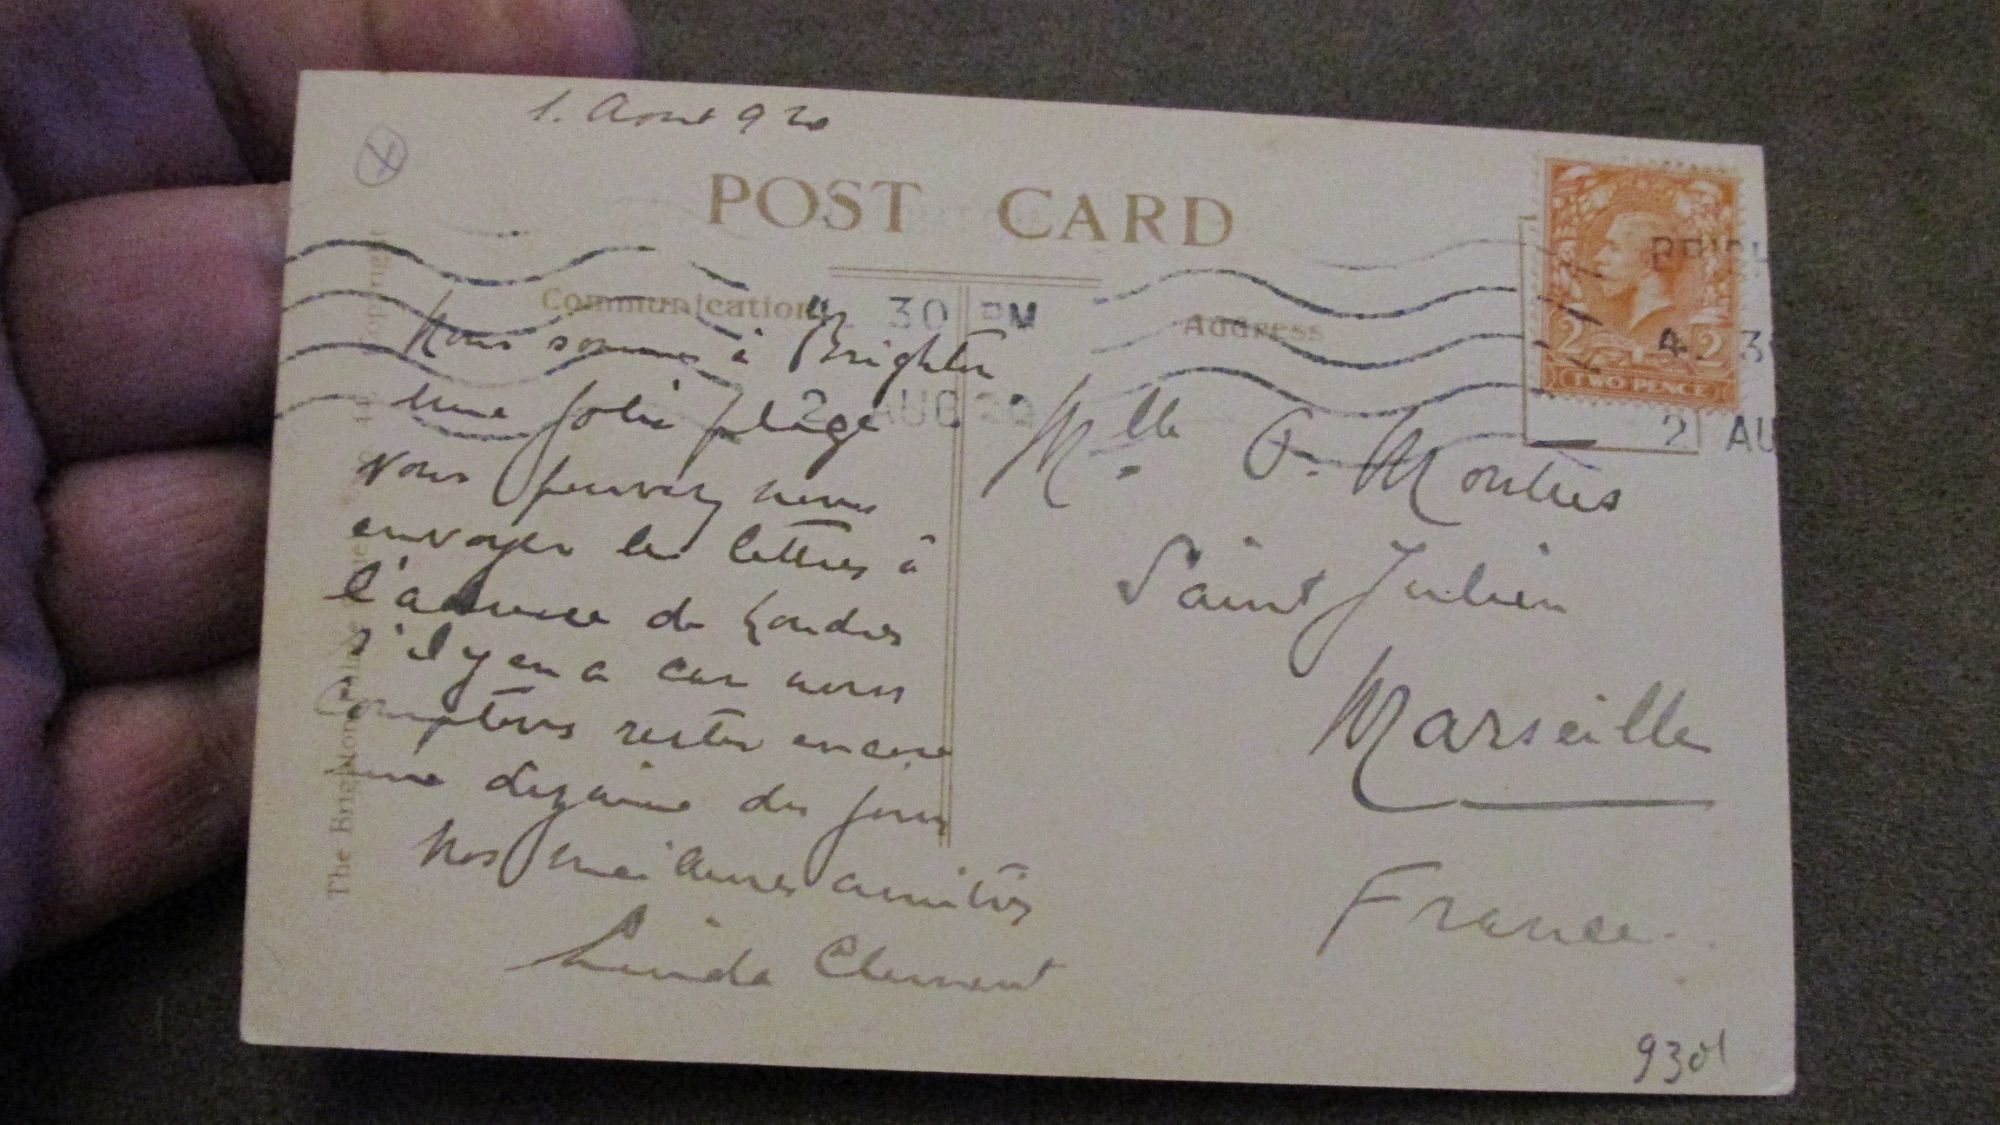 1. Aout 920
POST CARD
Communication
Address
4. 30 PM
2 AUG 20
BRIGH
4. 3
2 AU
2 2
TWO PENCE
Nous sommes à Brighton
Une jolie plage
Vous pouvez nous
envoyer les lettres à
l'adresse de Londres
s'il y en a car nous
comptons rester encore
une dizaine de jours
Nos meilleures amitiés
Linda Clement
Mlle
Saint Julien
Marseille
France
The Brighton
930